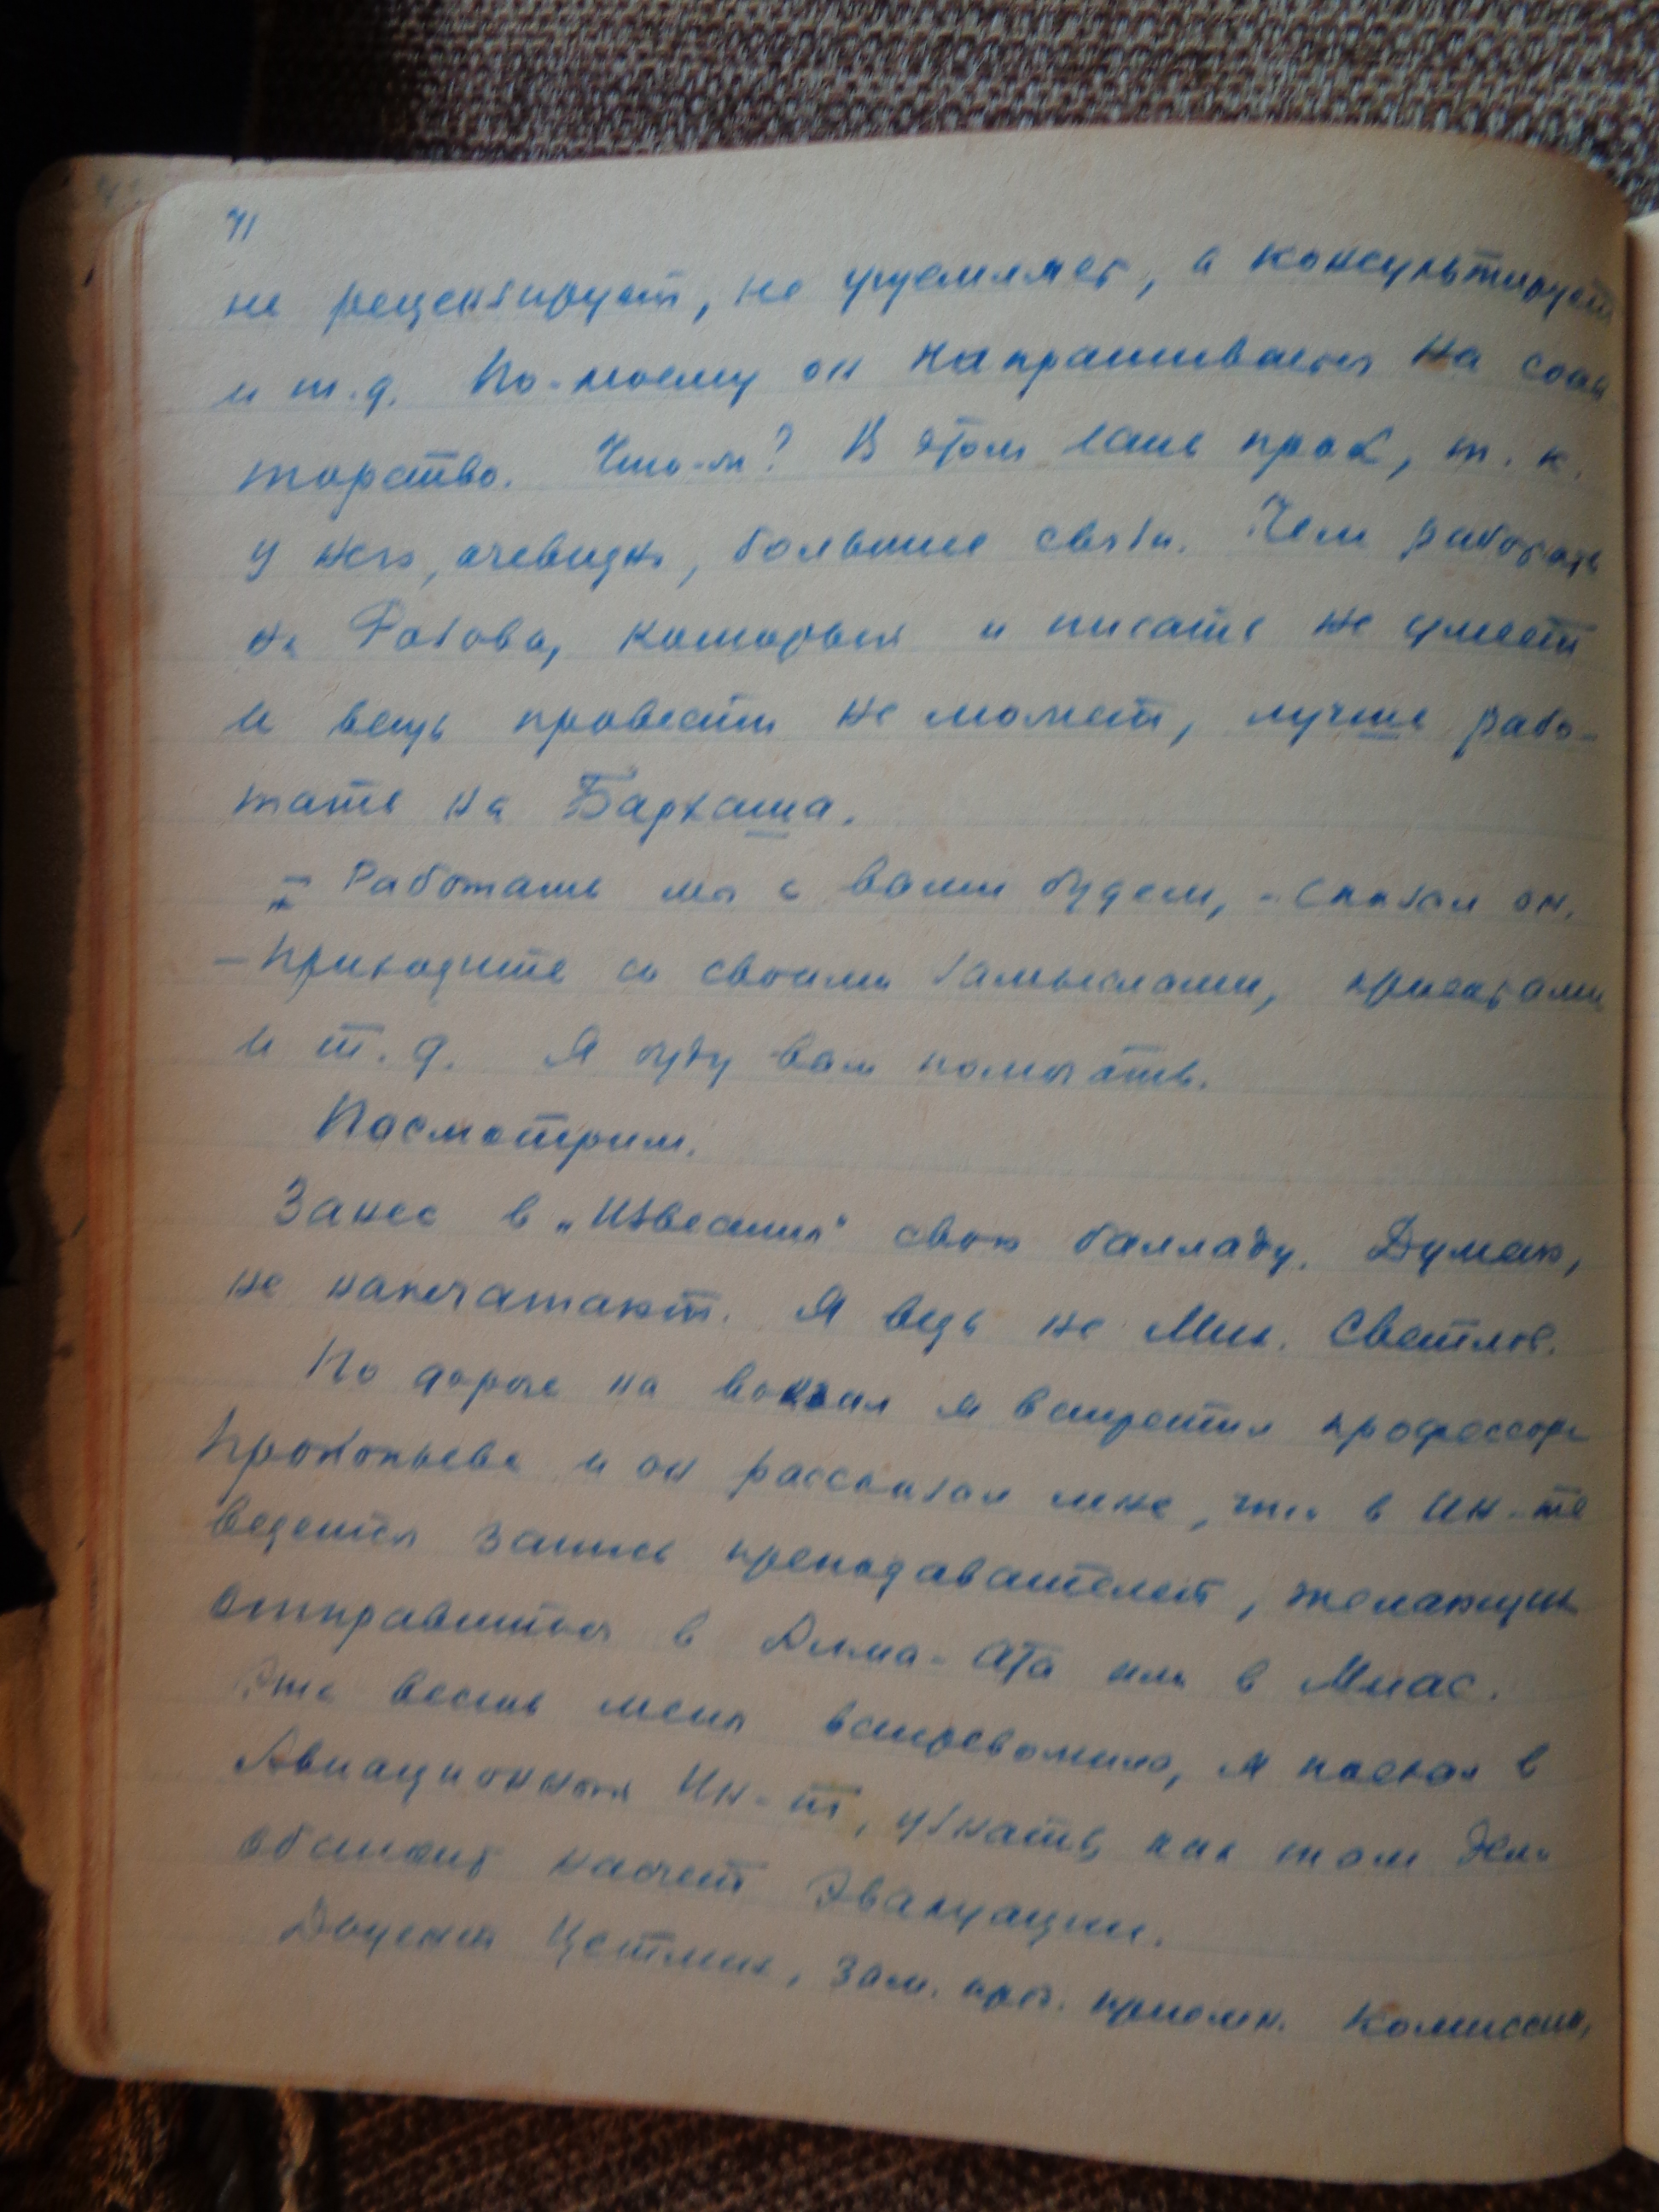 71
не рецензирует, не ущемляет, а консультирует
и т.д. По-моему он напрашивается на соав
торство. Что-ж? В этом есть прок, т.к.
у него, очевидно, большие связи. Чем работать
на Розова, который и писать не умеет
и вещь провести не может, лучше рабо-
тать на Бархаша.
- Работать мы с вами будем, - сказал он.
- Приходите со своими замыслами, проектами
и т.д. Я буду вам помогать.
Посмотрим.
Занес в „Известия" свою балладу. Думаю,
не напечатают. Я ведь не Мих. Светлов.
По дороге на вокзал я встретил профессора
Прокопьева и он рассказал мне, что в Ин-те
ведется запись преподавателей, желающих
отправиться в Алма-Ата или в Миас.
Эта весть меня встревожила, я поехал в
Авиационный Ин-т, узнать, как там дела
обстоят насчет эвакуации.
Доцент Цетлин, зам. пред. приемн. комиссии,